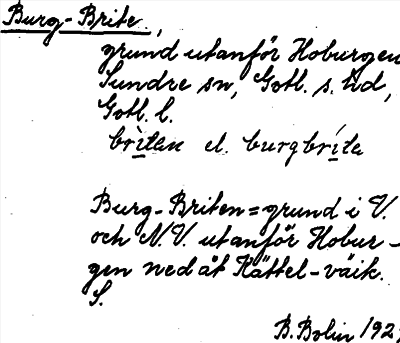 Burg-Brite,
grund utanför Hoburgen
Sundre sn, Gotl. s. hd,
Gotl. l.
britan el. burgbrita
Burg-Briten = grund i V.
och N.V. utanför Hobur-
gen nedåt Kättel-väik.
S.
B. Bolin 192